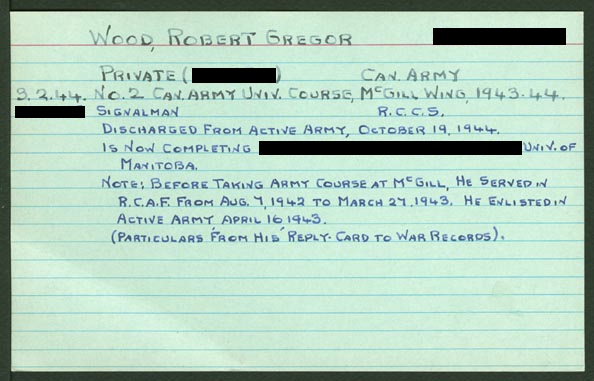 WOOD, ROBERT GREGOR
PRIVATE ( ) CAN. ARMY
3.2.44. NO. 2 CAN. ARMY UNIV. COURSE, MCGILL WING, 1943-44.
SIGNALMAN R.C.C.S.
DISCHARGED FROM ACTIVE ARMY, OCTOBER 19, 1944.
IS NOW COMPLETING UNIV. OF
MANITOBA.
NOTE: BEFORE TAKING ARMY COURSE AT MCGILL, HE SERVED IN
R.C.A.F. FROM AUG. 7, 1942 TO MARCH 27, 1943. HE ENLISTED IN
ACTIVE ARMY APRIL 16 1943.
(PARTICULARS FROM HIS REPLY-CARD TO WAR RECORDS).